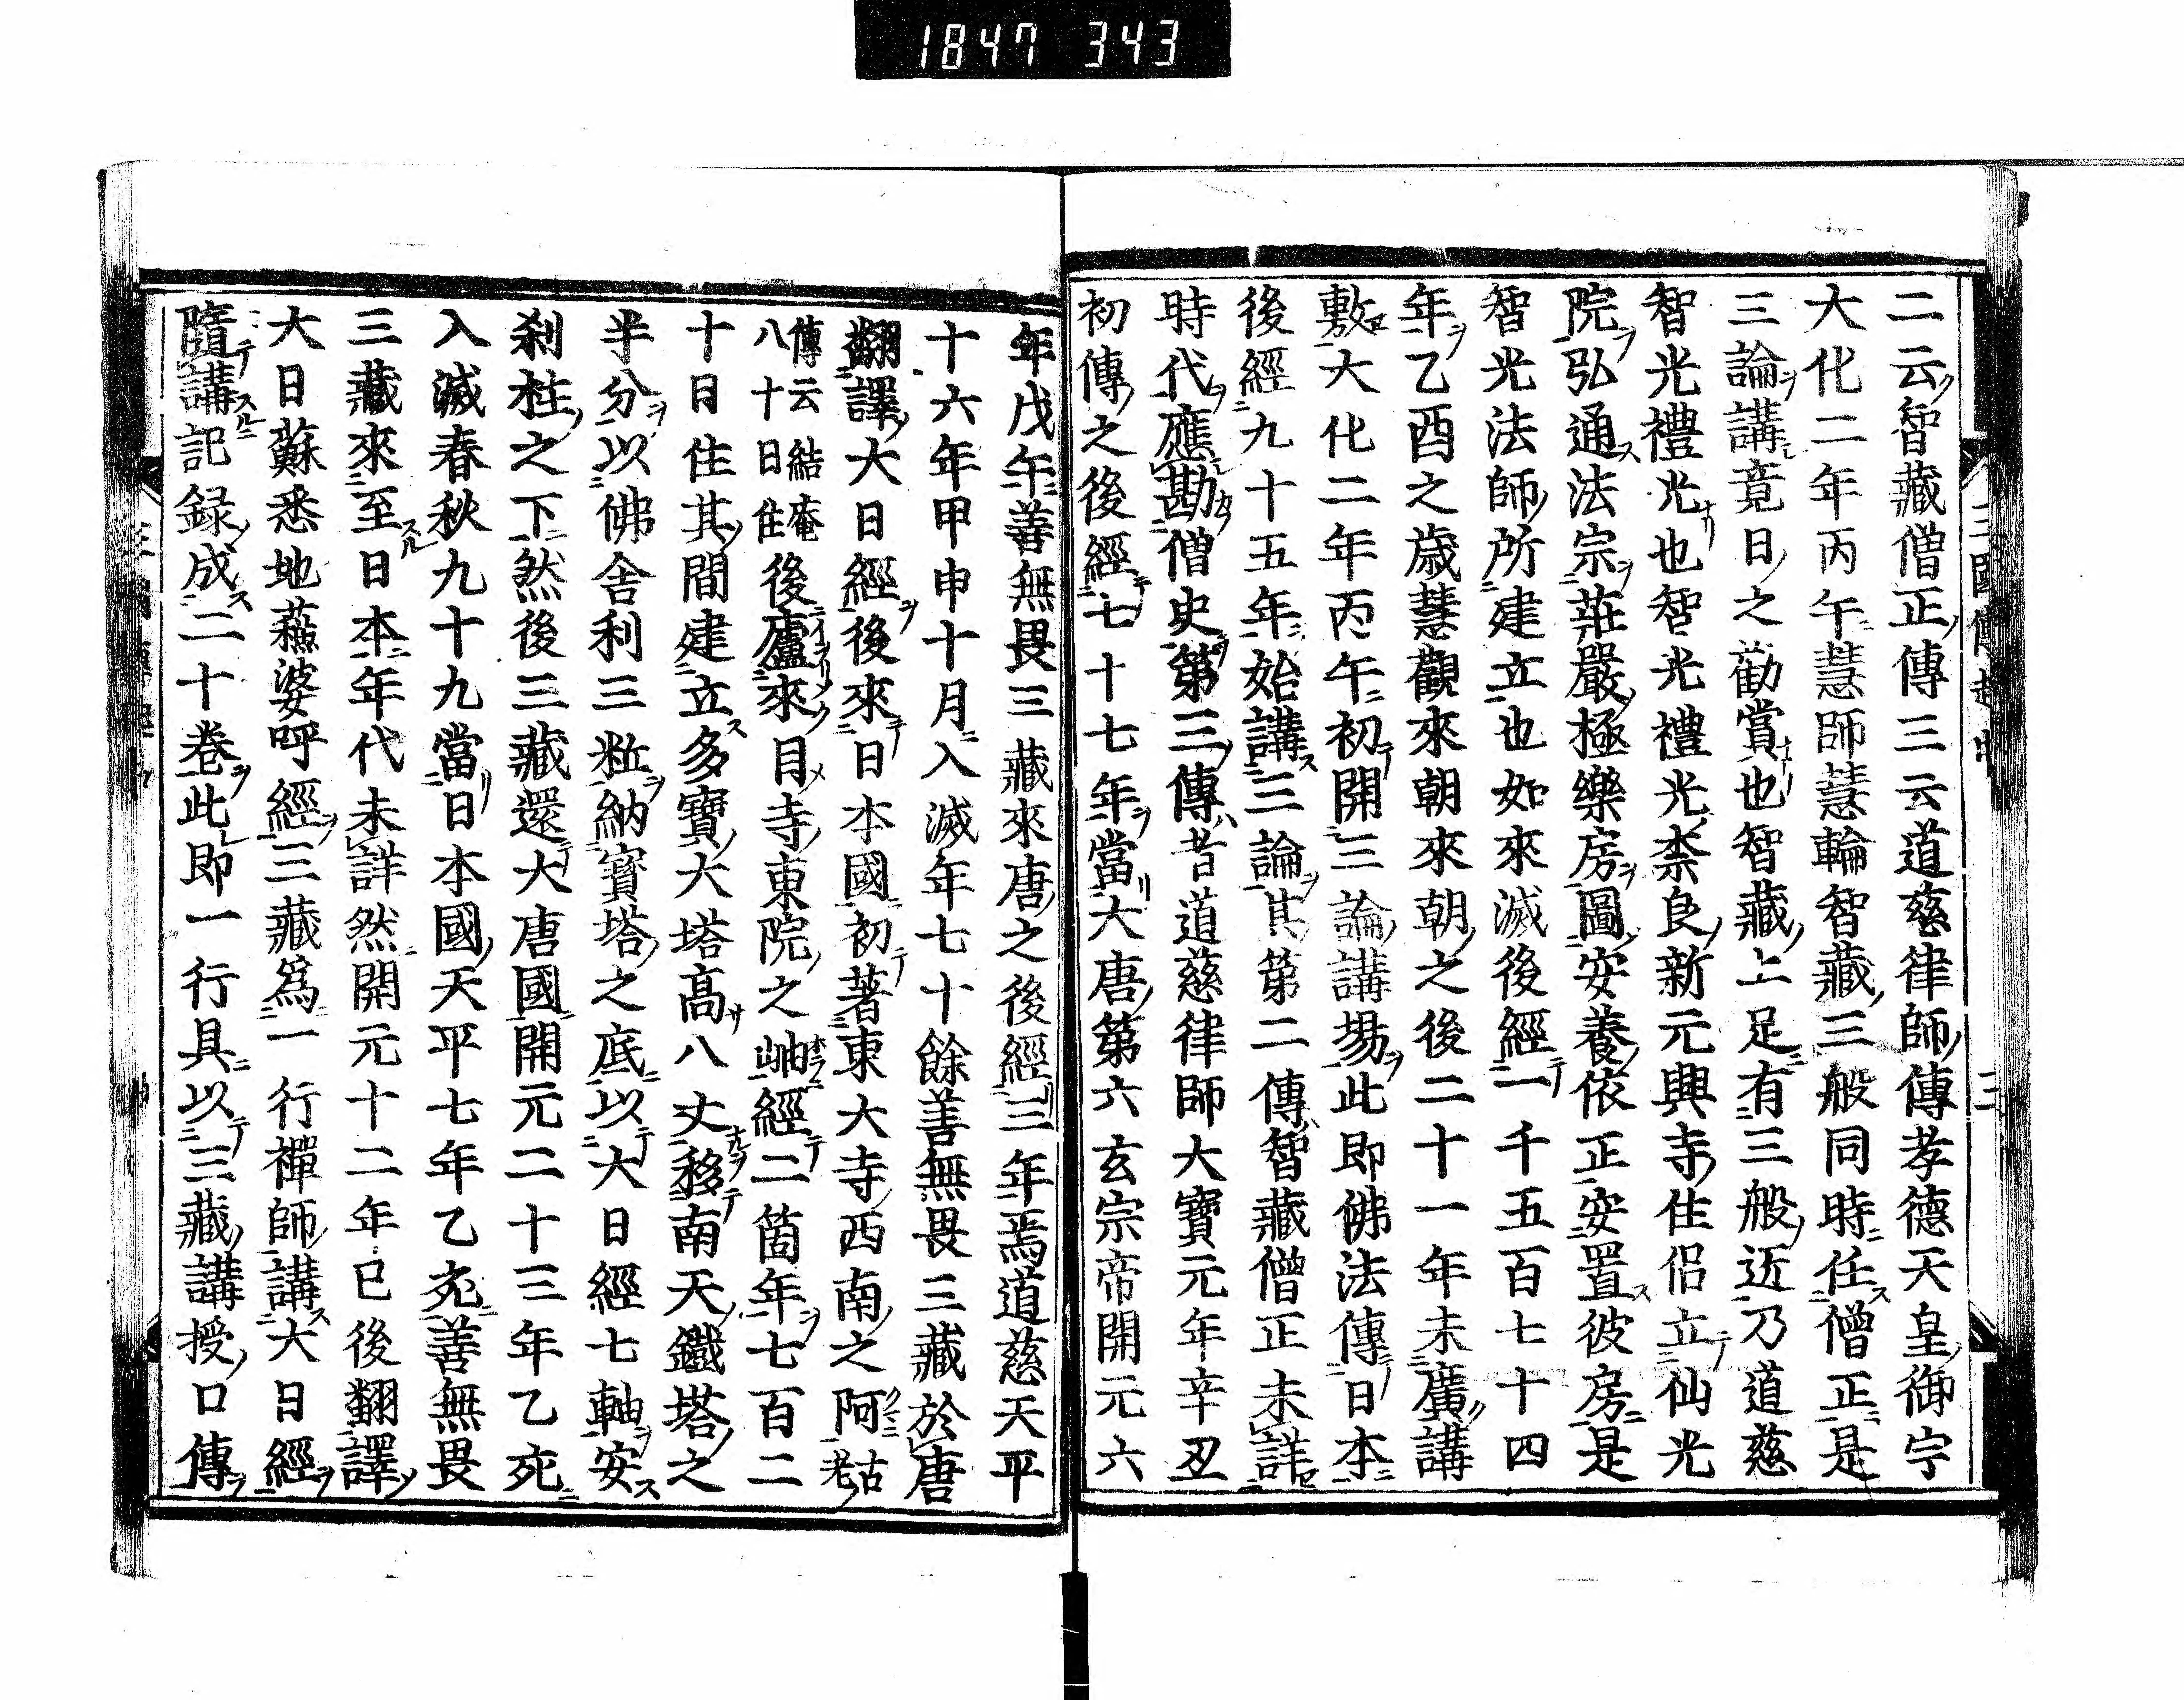 1847 343
二云智藏僧正傳三云道慈律師傳孝德天皇御宇
大化二年丙午慧師慧輪智藏三般同時任僧正是
三論講竟日之勸賞也智藏上足有三般近乃道慈
智光禮光也智光禮光柰良新元興寺住侶立仙光
院弘通法宗莊嚴極樂房圖安養依正安置彼房是
智光法師所建立也如來滅後經一千五百七十四
年乙酉之歲慧觀來朝來朝之後二十一年未廣講
敷大化二年丙午初開三論講場此即佛法傳日本
後經九十五年始講三論其第二傳智藏僧正未詳
時代應勘僧史第三傳者道慈律師大寶元年辛丑
初傳之後經七十七年當大唐第六玄宗帝開元六
年戊午善無畏三藏來唐之後經三年焉道慈天平
十六年甲申十月入滅年七十餘善無畏三藏於唐
翻譯大日經後來日本國初著東大寺西南之阿古老
傳云結庵八十日住後廬來目寺東院之岫經二箇年七百二
十日住其間建立多寶大塔高八丈移南天鐵塔之
半分以佛舍利三粒納寶塔之底以大日經七軸安
刹柱之下然後三藏還大唐國開元二十三年乙亥
入滅春秋九十九當日本國天平七年乙亥善無畏
三藏來至日本年代未詳然開元十二年已後翻譯
大日蘇悉地蘓婆呼經三藏爲一行禪師講大日經
隨講記録成二十卷此即一行具以三藏講授口傳